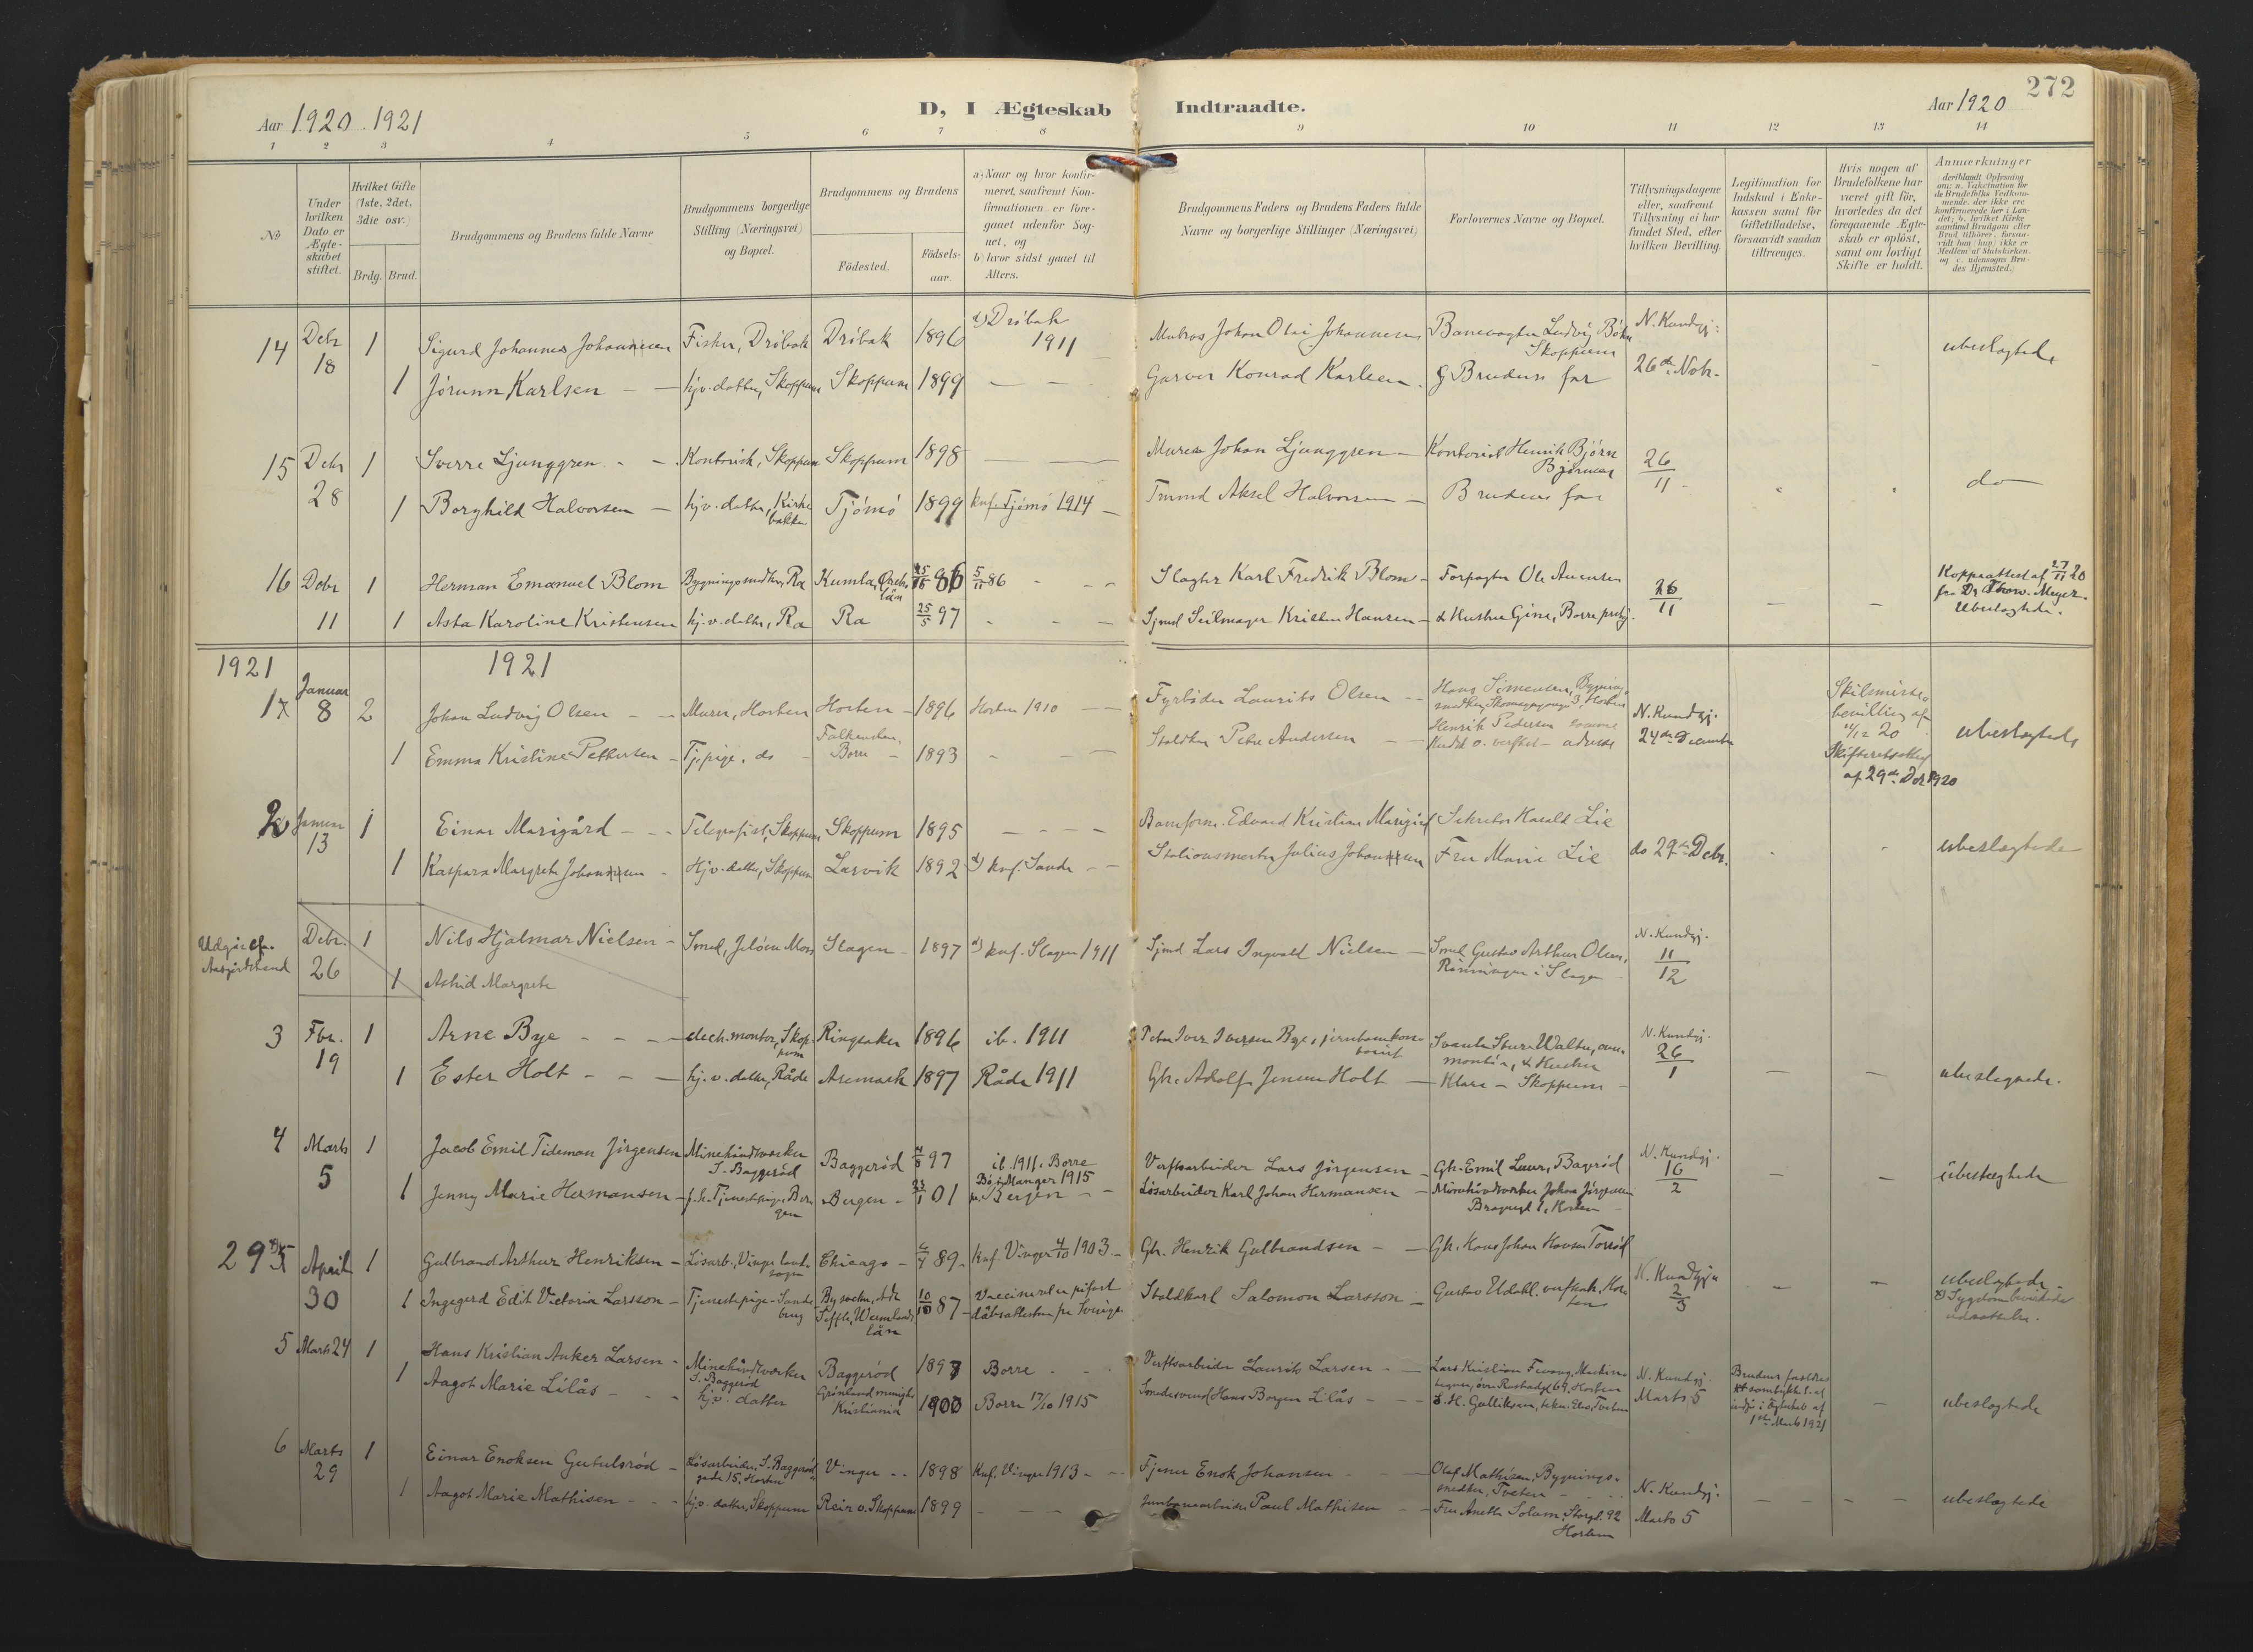 272
Aar 1920. 1921
D, I Ægteskab Indtraadte.
Aar 1920
1 2 3 4 5 6 7 8 9 10 11 12 13 14
№
Under hvilken Dato er Ægteskabet stiftet.
Hvilket Gifte (1ste, 2det, 3die osv.)
Brdg. Brud.
Brudgommens og Brudens fulde Navne
Brudgommens borgerlige Stilling (Næringsvei) og Bopæl.
Brudgommens og Brudens
Födested.
Födsels-aar.
a) Naar og hvor konfirmeret, saafremt Konfirmationen er foregaaet udenfor Sognet, og
b) hvor sidst gaaet til Alters.
Brudgommens Faders og Brudens Faders fulde Navne og borgerlige Stillinger (Næringsvei)
Forlovernes Navne og Bopæl.
Tillysningsdagene eller, saafremt Tillysning ei har fundet Sted, efter hvilken Bevilling.
Legitimation for Indskud i Enkekassen samt for Giftetilladelse, forsaavidt saadan tiltrænges.
Hvis nogen af Brudefolkene har været gift før, hvorledes da det foregaaende Ægteskab er opløst, samt om lovligt Skifte er holdt.
Anmærkninger
14 Debr 18 1 Sigurd Johannes Johannesen Fisker, Dröbak Dröbak 1896 a) Dröbak 1911 Matros Johan Olai Johannesen Banevogter Ludvig Skoppum N. Kundgj: 26de Nobr. ubeslægtede
1 Jørunn Karlsen - - hjv. datter, Skoppum Skoppum 1899 - - Garver Konrad Karlsen. Brudens far
15 Debr 28 1 Sverre Ljunggren - - Kontorist, Skoppum Skoppum 1898 Murer Johan Ljunggren - Kontorist Henrik Björn 26/11 - do
1 Borghild Halvorsen - hjv. datter, Kirkebakken Tjömö 1899 knf. Tjömö 1914 - Aksel Halvorsen - Brudens far
16 Debr 11 1 Herman Emanuel Blom Bygningssnedker, Ra Kumla, Örebro län 86 5/11 86 - - Slagter Karl Fredrik Blom - Forpagter Ole Amensen 26/11 Koppeattest af 27/11 20 fra Dr Thorv. Meyer. Ubeslægtede.
1 Asta Karoline Kristensen hj. v. datter, Ra Ra 25/5 97 - - - Sjmd Seilmager Kristen Hansen - & Hustru Gine, Borre prstgj.
1921 1921
1 Januar 8 2 Johan Ludvig Olsen - - Murer, Horten Horten - 1896 Horten 1910 - - Fyrböder Laurits Olsen - - Hans Simensen, Bygningssnedker, 3, Horten N. Kundgj. 24de December Skilsmissebevilling af 20 Skifteretsattest af 29de Dcbr 1920 ubeslægtede
1 Emma Kristine Pettersen - Tj. pige, do - Falkensten, Borre - 1893 - - Petter Andersen - - Henrik Pedersen samme adresse
2 Januar 13 1 Einar Marigård - - - Telegrafist, Skoppum Skoppum 1895 - - - Baneform. Edvard Kristian Marigård Harald Lie do 29de Debr. ubeslægtede
1 Kaspara Margrete Johannesen - Hjv. datter, Skoppum Larvik 1892 a) knf. Sande - - Stationsmester Julius Johannesen Fru Marie Lie
Udgår efr. Debr. 26 1 Nils Hjalmar Nielsen - Smed, Jelöen Moss Slagen - 1897 a) knf. Slagen 1911 Sjmd Lars Ingvald Nielsen - Smed Gustav Arthur Olsen, i Slagen N. Kundgj. 11/12
1 Astrid Margrete
3 Fbr. 19 1 Arne Bye - - - - elech. montör, Skoppum Ringsaker 1896 ib. 1911 Peter Iver Iversen Bye, jernbanekontorist Svante Sture Walter, montör, & Hustru Klara - Skoppum N. Kundgj. 26/1 - - ubeslægtede.
1 Ester Holt - - - hj. v. datter, Råde Aremark 1897 Råde 1911 Gbr. Adolf Jensen Holt
4 Marts 5 1 Jacob Emil Tideman Jörgensen Minehåndtverker S. Baggeröd Baggeröd 97 ib. 1911, Borre Verftsarbeider Lars Jörgensen - Gbr. Emil Lauer, Bageröd N. Kundgj. 16/2 - - ubeslægtede
1 Jenny Marie Hermansen - f. h. Tjenestepige, Bergen Bergen - 01 Manger 1915 Bergen - - Lösarbeider Karl Johan Hermansen - Minehåndtverker Johan Jörgensen 1, Horten
29 5 April 30 1 Gulbrand Arthur Henriksen - Lösarb., Vinger landsogn Chicago - 89. knf. Vinger 4/10 1903 - Gbr. Henrik Gulbrandsen - - Gbr. Hans Johan Hansen Torröd N. Kundgj. 2/3 - - ubeslægtede
1 Ingegerd Edit Victoria Larsson - Tjenestepige - Sandeburg By socken, Seffle, Wermlands län 10/10 87 - Vaccineret er påført dåbsattesten fr. Sverige Staldkarl Salomon Larsson - Gustav Udahl. verftsarb., Horten
5 Marts 24 1 Hans Kristian Anker Larsen - Minehåndtverker S. Baggeröd Baggeröd 1893 Borre - - Verftsarbeider Laurits Larsen - - Lars Kristian 69, Horten N. Kundgj. Marts 5 Brudens samtykke t. at i Ægteskab af 1ste Marts 1921 - ubeslægtede
1 Aagot Marie Lilås - - - hjv. datter Grönland menighet Kristiania 1900 Borre 17/10 1915 Smedesvend Hans Borgen Lilås - - - S. H. Gulliksen,
6 Marts 29 1 Einar Enoksen Gutulsröd - Lösarbeider, S. Baggerödgade 15, Horten Vinger - - 1898 Knf. Vinger 1913 - - - Enok Johansen - - - Olaf Mathisen, Bygningssnedker, Tveten - N. Kundgj. Marts 5 - - - - ubeslægtede
1 Aagot Marie Mathisen - - - hjv. datter, Skoppum Reir v. Skoppum 1899 - - - Jernbanearbeider Paul Mathisen - - Fru Anette Solum, Storgt. 92 Horten